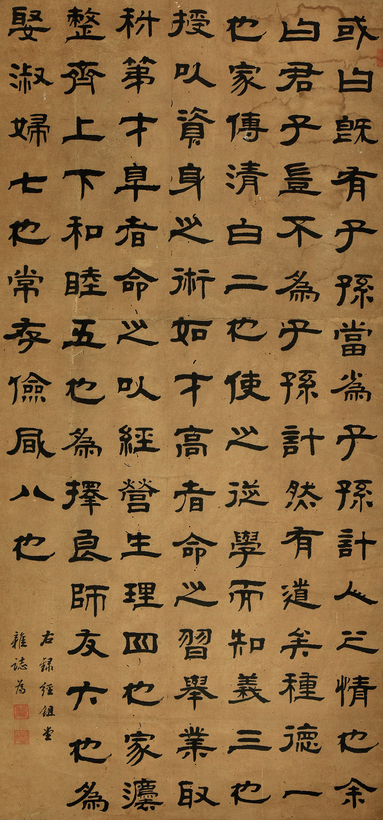 或曰既有子孫當為子孫計人之情也余
曰君子豈不為子孫計然有道矣種德一
也家傳清白二也使之從學而知義三也
授以資身之術如才高者命之習舉業取
科第才卑者命之以經營生理四也家灋
整齊上下和睦五也為擇良師友六也為
娶淑婦七也常存儉風八也
右錄經鉏堂
雜誌